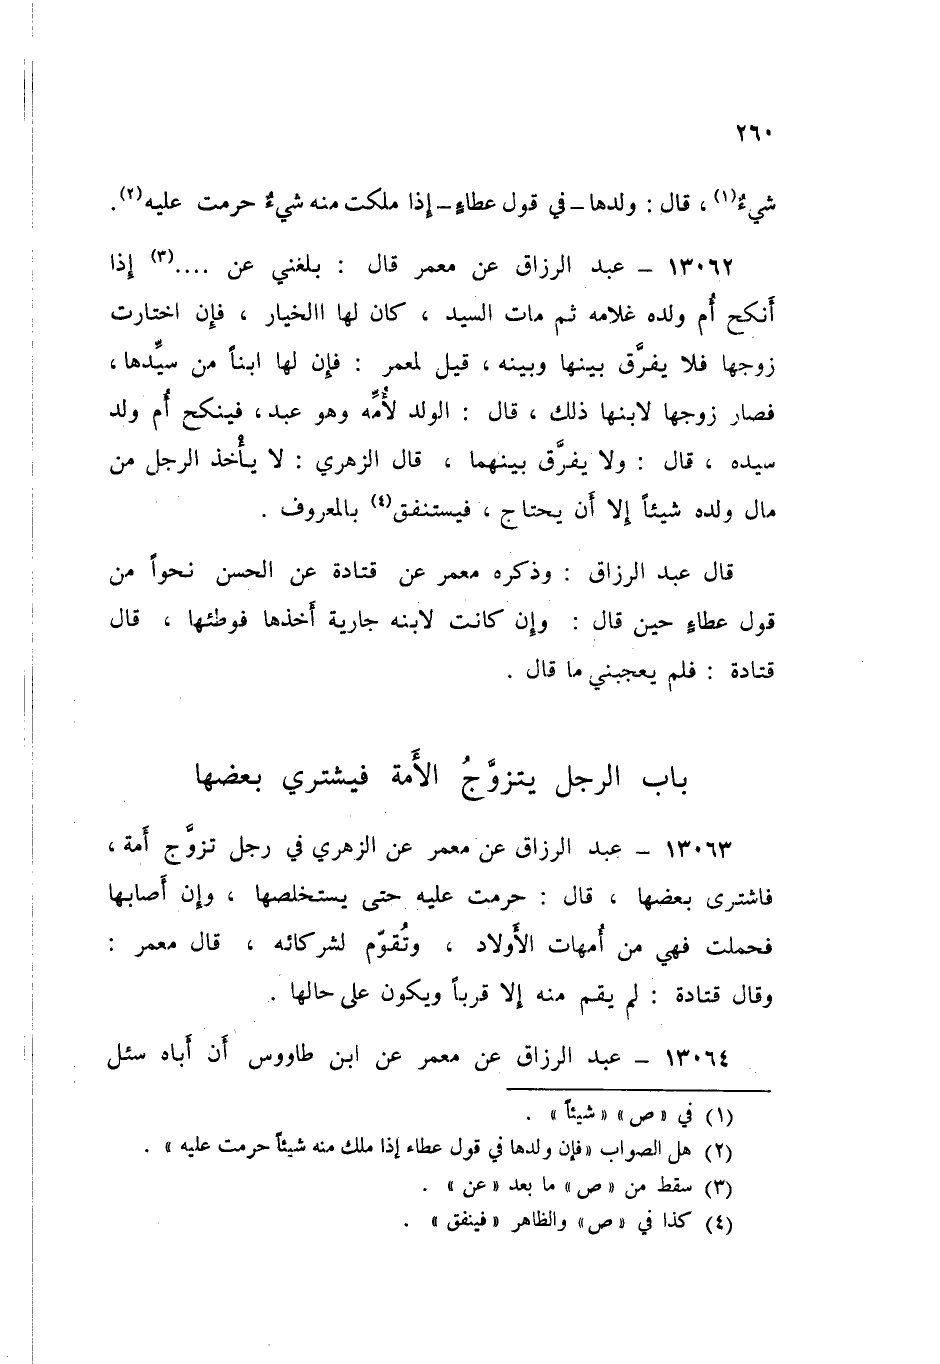 ٢٦٠
شيءٌ(١) ، قال : ولدها ــ في قول عطاءٍ ــ إذا ملكت منه شيءٌ حرمت عليه(٢).
١٣٠٦٢ ــ عبد الرزاق عن معمر قال : بلغني عن ....(٣) إذا
أنكح أُم ولده غلامه ثم مات السيد ، كان لها االخيار ، فإن اختارت
زوجها فلا يفرَّق بينها وبينه ، قيل لمعمر : فإن لها ابناً من سيِّدها ،
فصار زوجها لابنها ذلك ، قال : الولد لأُمِّه وهو عبد ، فينكح أُم ولد
سيده ، قال : ولا يفرَّق بينهما ، قال الزهري : لا يأْخذ الرجل من
مال ولده شيئاً إلا أن يحتاج ، فيستنفق(٤) بالمعروف .
قال عبد الرزاق : وذكره معمر عن قتادة عن الحسن نحواً من
قول عطاءٍ حين قال : وإن كانت لابنه جارية أخذها فوطئها ، قال
قتادة : فلم يعجبني ما قال .
باب الرجل يتزوَّجُ الأَمة فيشتري بعضها
١٣٠٦٣ ــ عبد الرزاق عن معمر عن الزهري في رجل تزوَّج أَمة ،
فاشترى بعضها ، قال : حرمت عليه حتى يستخلصها ، وإن أصابها
فحملت فهي من أُمهات الأَولاد ، وتُقوّم لشركائه ، قال معمر :
وقال قتادة : لم يقم منه إلا قرباً ويكون على حالها .
١٣٠٦٤ ــ عبد الرزاق عن معمر عن ابن طاووس أَن أَباه سئل
(١) في «ص» «شيئاً» .
(٢) هل الصواب «فإن ولدها في قول عطاء إذا ملك منه شيئاً حرمت عليه» .
(٣) سقط من «ص» ما بعد «عن» .
(٤) كذا في «ص» والظاهر «فينفق» .